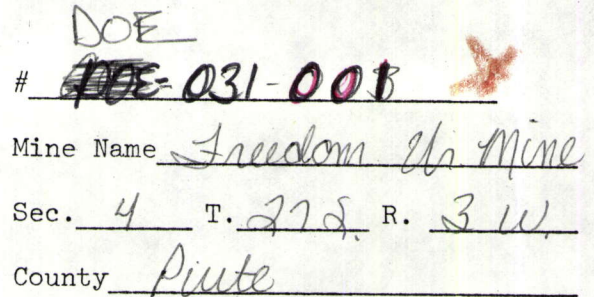 DOE
# DOE-031-001
Mine Name Freedom Ur Mine
Sec. 4 T. 27 S. R. 3 W.
County Piute